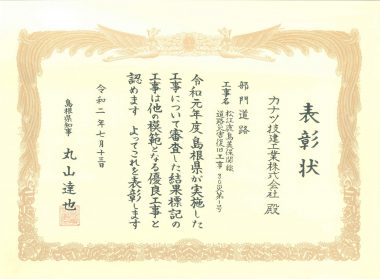 表彰状
カナツ技建工業株式会社 殿
部門 道路
工事名 松江鹿島美保関線
道路災害復旧工事 30災第1号
令和元年度 島根県が実施した
工事について審査した結果標記の
工事は他の模範となる優良工事と
認めます よってこれを表彰します
令和二年七月十三日
島根県知事 丸山達也